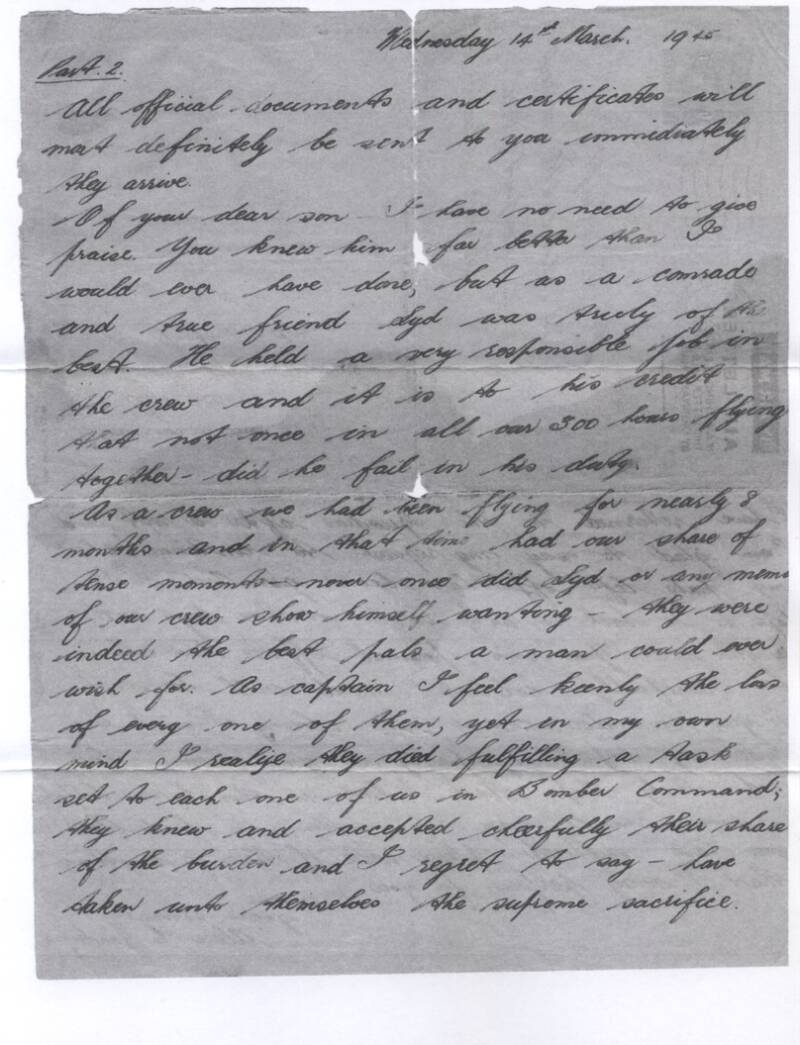 Wednesday 14th March. 1945
Part. 2.
All official documents and certificates will
most definitely be sent to you immidiately
they arrive.
Of your dear son I have no need to give
praise. You knew him far better than I
would ever have done, but as a comrade
and true friend Syd was truly of the
best. He held a very responsible job in
the crew and it is to his credit
that not once in all our 300 hours flying
together - did he fail in his duty.
As a crew we had been flying for nearly 8
months and in that time had our share of
tense moments - never once did Syd or any mem
of our crew show himself wanting - they were
indeed the best pals a man could ever
wish for. As captain I feel keenly the loss
of every one of them, yet in my own
mind I realize they died fulfilling a task
set to each one of us in Bomber Command;
they knew and accepted cheerfully their share
of the burden and I regret to say - have
taken unto themselves the supreme sacrifice.